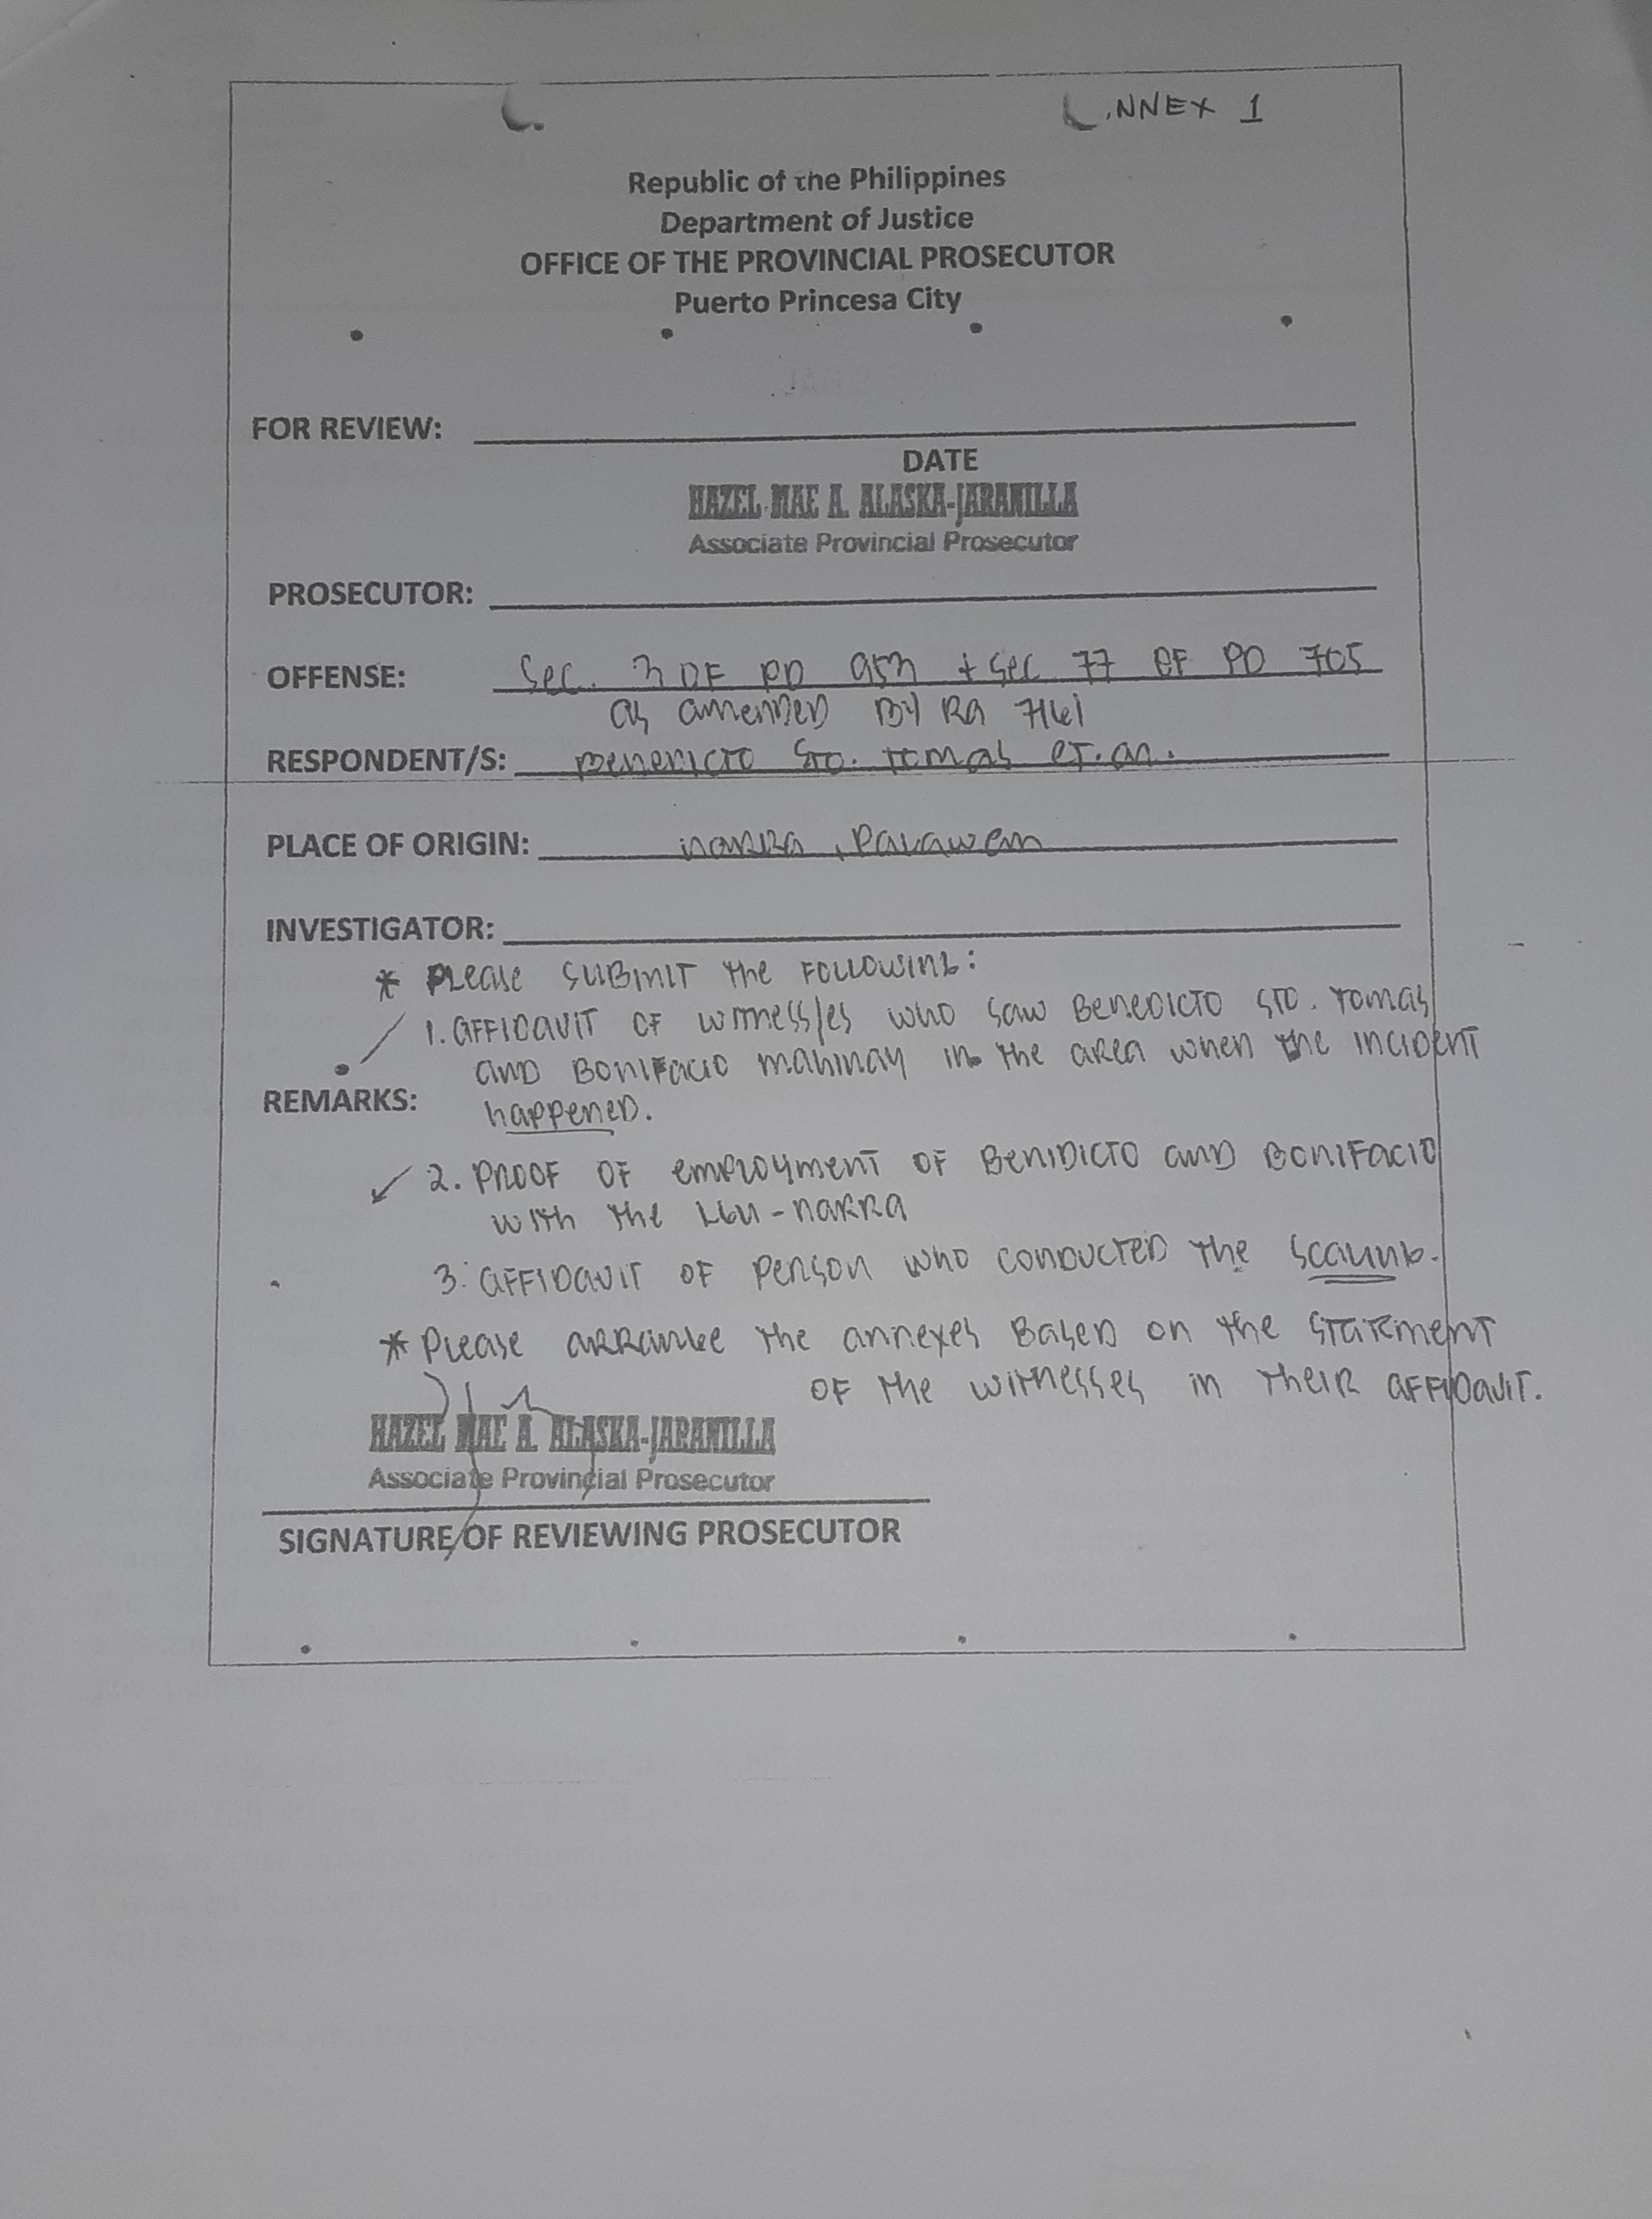 ANNEX 1
Republic of the Philippines
Department of Justice
OFFICE OF THE PROVINCIAL PROSECUTOR
Puerto Princesa City
FOR REVIEW:
DATE
HAZEL MAE A. ALASKA-JARANILLA
Associate Provincial Prosecutor
PROSECUTOR:
OFFENSE: Sec. 3 OF PD 953 + Sec 77 OF PD 705
as amended By RA 7161
RESPONDENT/S: Benedicto Sto. Tomas et. al.
PLACE OF ORIGIN: Narra, Palawan
INVESTIGATOR:
* Please submit the following:
1. Affidavit of witness/es who saw Benedicto Sto. Tomas
and Bonifacio Mahinay in the area when the incident
happened.
REMARKS:
2. Proof of employment of Benidicto and Bonifacio
with the LGU-Narra
3. Affidavit of person who conducted the scaling.
* Please arrange the annexes based on the statement
of the witnesses in their affidavit.
HAZEL MAE A. ALASKA-JARANILLA
Associate Provincial Prosecutor
SIGNATURE OF REVIEWING PROSECUTOR